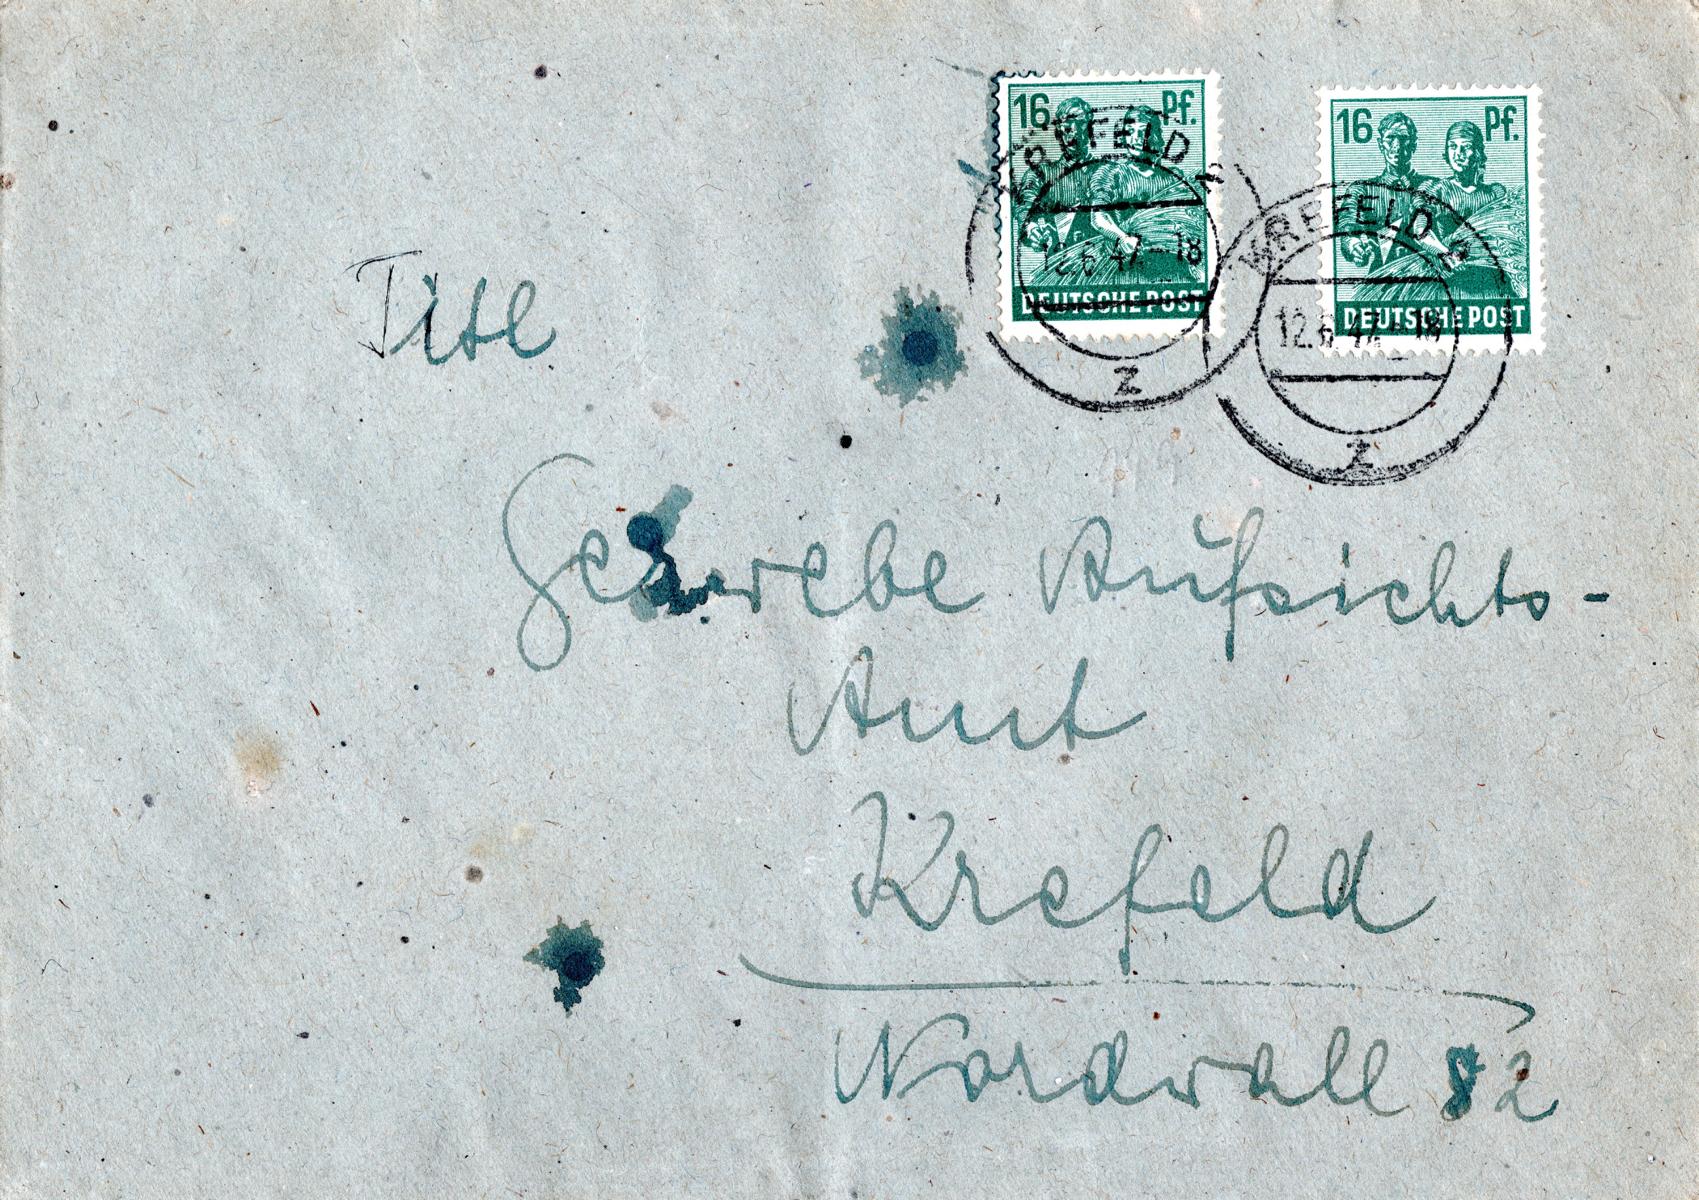 16 Pf.
DEUTSCHE POST
16 Pf.
DEUTSCHE POST
KREFELD 2
12.6.47-18
z
KREFELD 2
12.6.47-18
z
An das
Gewerbe Aufsichts-
Amt
Krefeld
Nordwall 82